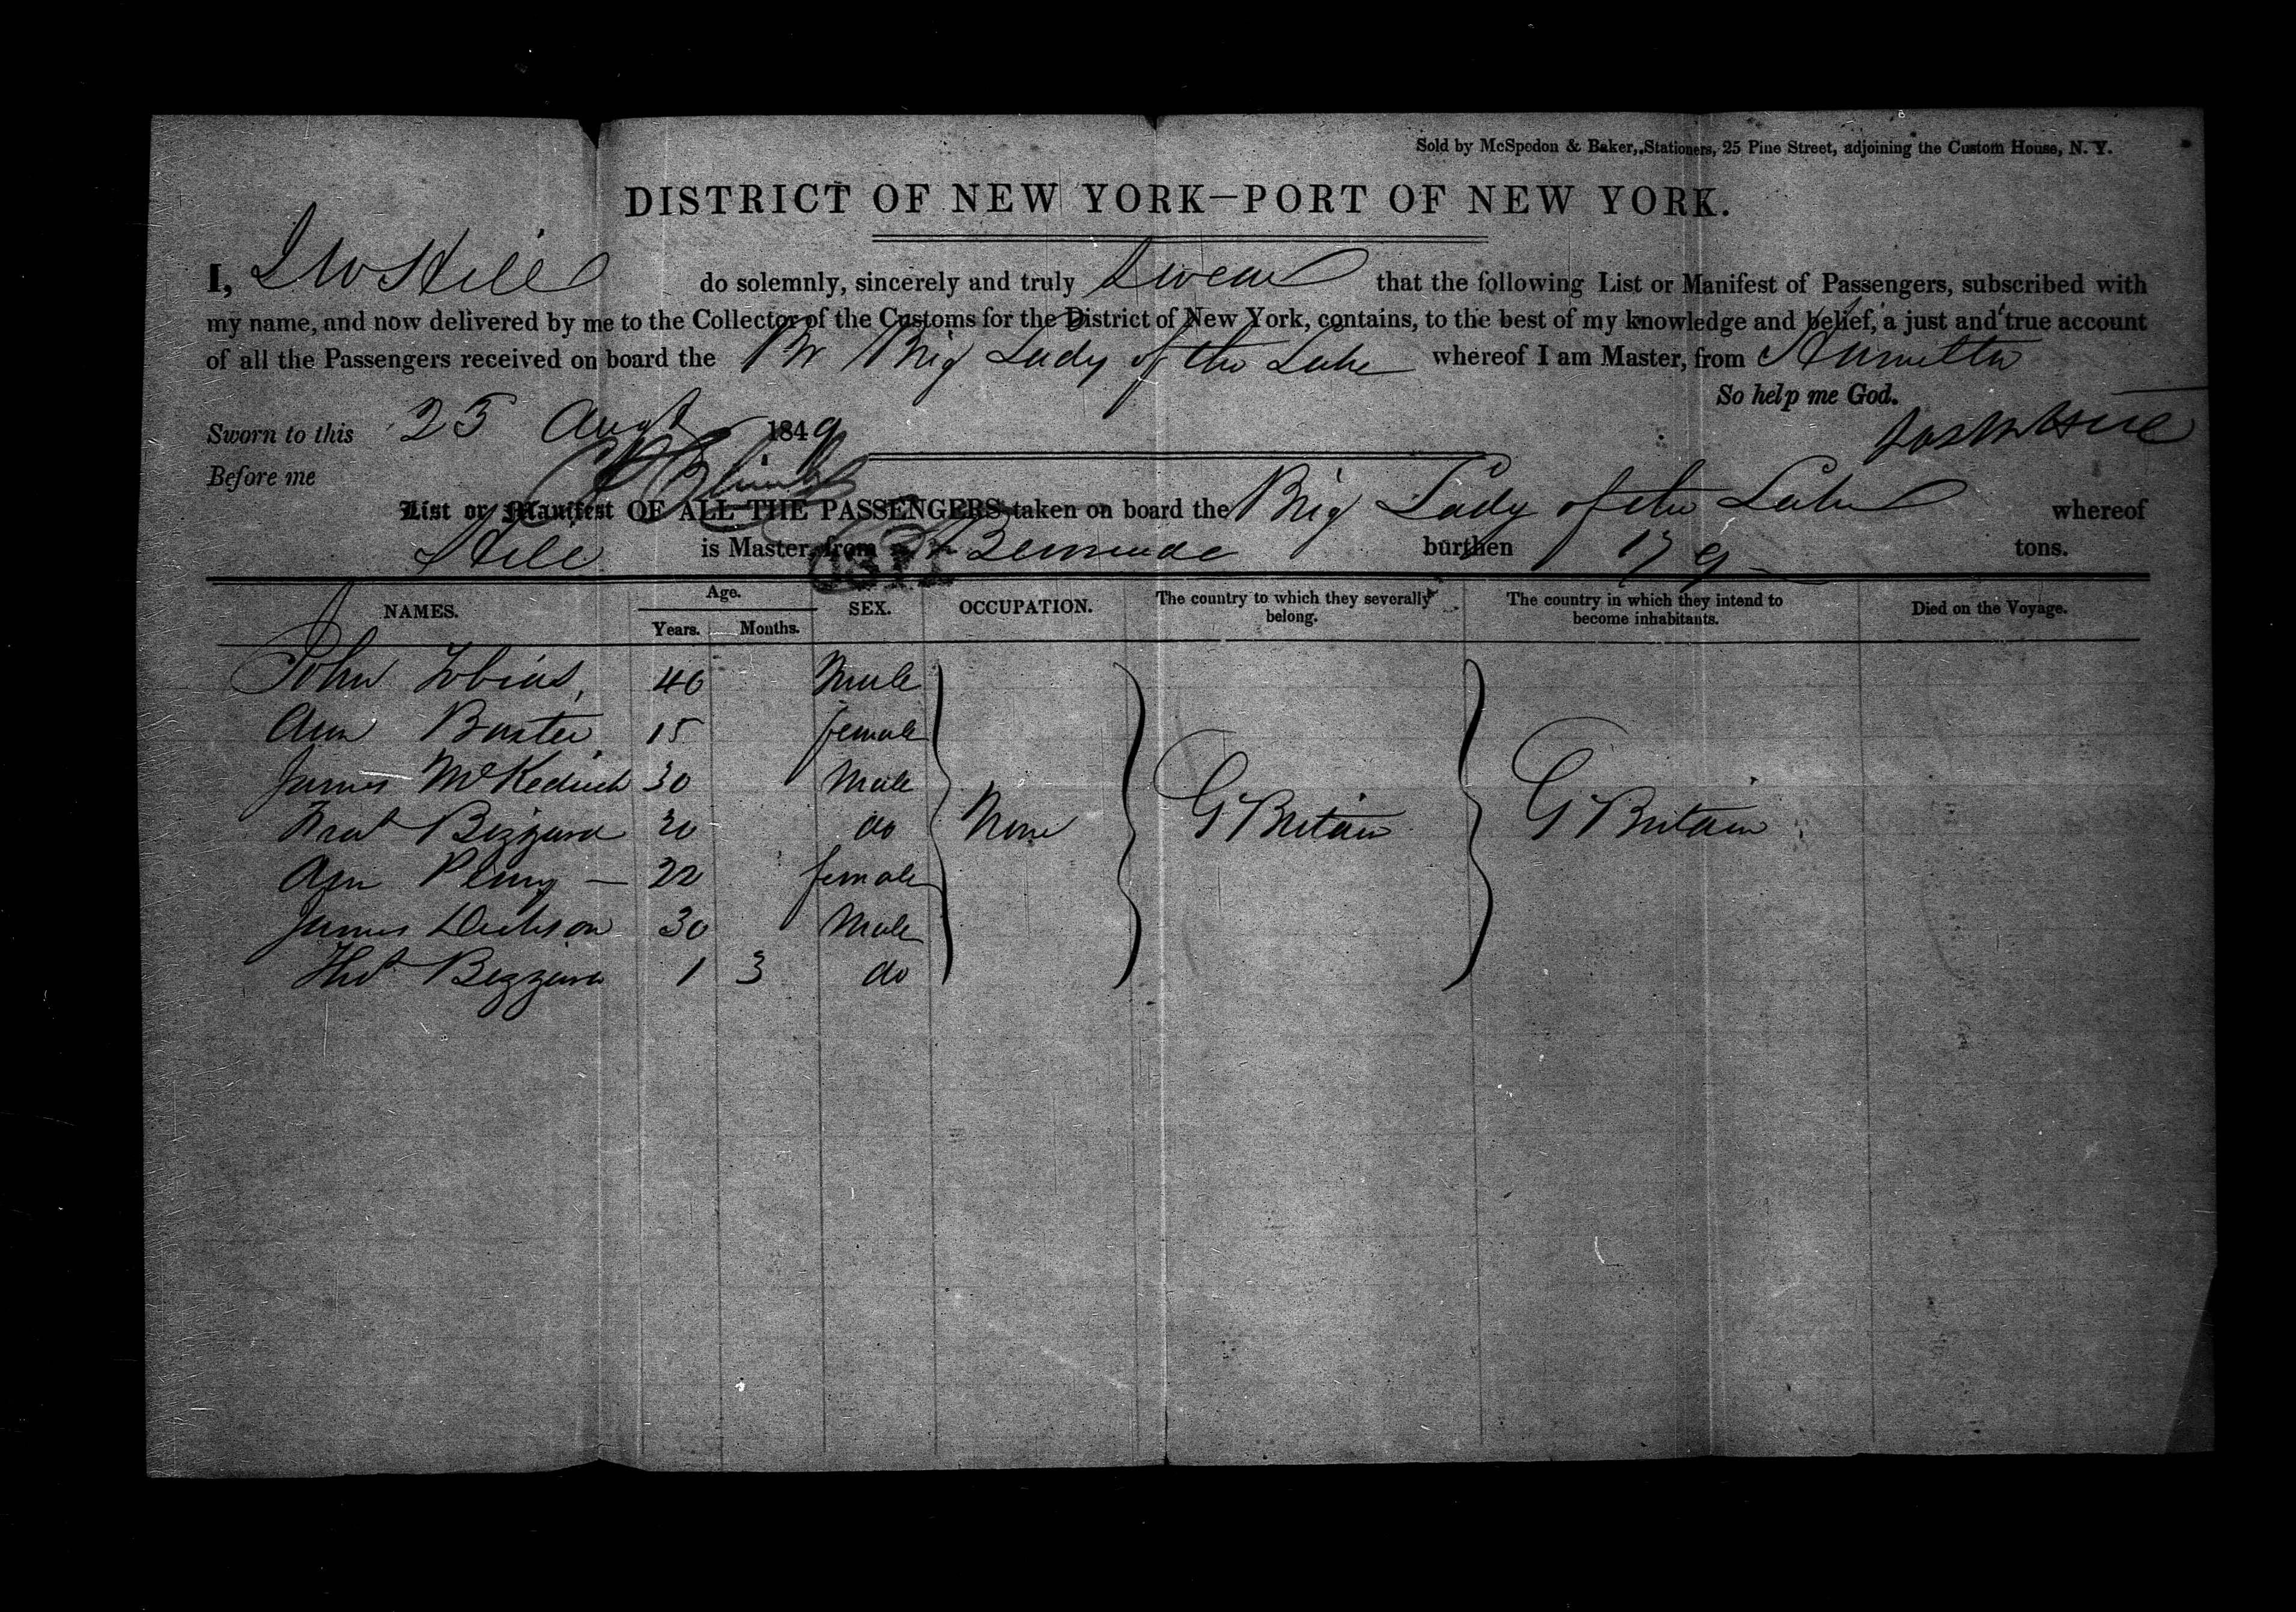 Sold by McSpedon & Baker, Stationers, 25 Pine Street, adjoining the Custom House, N. Y.
DISTRICT OF NEW YORK—PORT OF NEW YORK.
I, J W Hill do solemnly, sincerely and truly Swear that the following List or Manifest of Passengers, subscribed with
my name, and now delivered by me to the Collector of the Customs for the District of New York, contains, to the best of my knowledge and belief, a just and true account
of all the Passengers received on board the Br Brig Lady of the Lake whereof I am Master, from Hamilton
So help me God.
Sworn to this 25 Augt 1849
Jos W Hill
Before me
List or Manifest OF ALL THE PASSENGERS taken on board the Brig Lady of the Lake whereof
Hill is Master, from Bermuda burthen 179 tons.
NAMES. Age. Years. Months. SEX. OCCUPATION. The country to which they severally belong. The country in which they intend to become inhabitants. Died on the Voyage.
John Tobias, 46 Male
Ann Baxter 15 female
James McKedich 30 Male
Bizzard 20 do None G Britain G Britain
Ann Penny — 22 female
James Dickson 30 Male
Bizzard 1 3 do